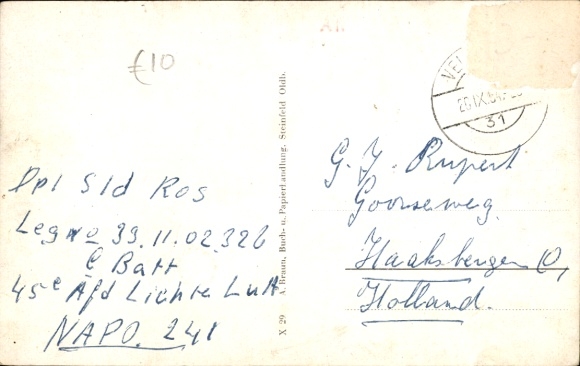 €10
Dpl Sld Ros
Leg no 39.11.02.326
C Batt
45e Afd Lichte Luft
NAPO. 241
X 29 A. Braun, Buch- u. Papierhandlung. Steinfeld Oldb.
31
G. J. Rupert
Goorseweg.
Haaksbergen O,
Holland.